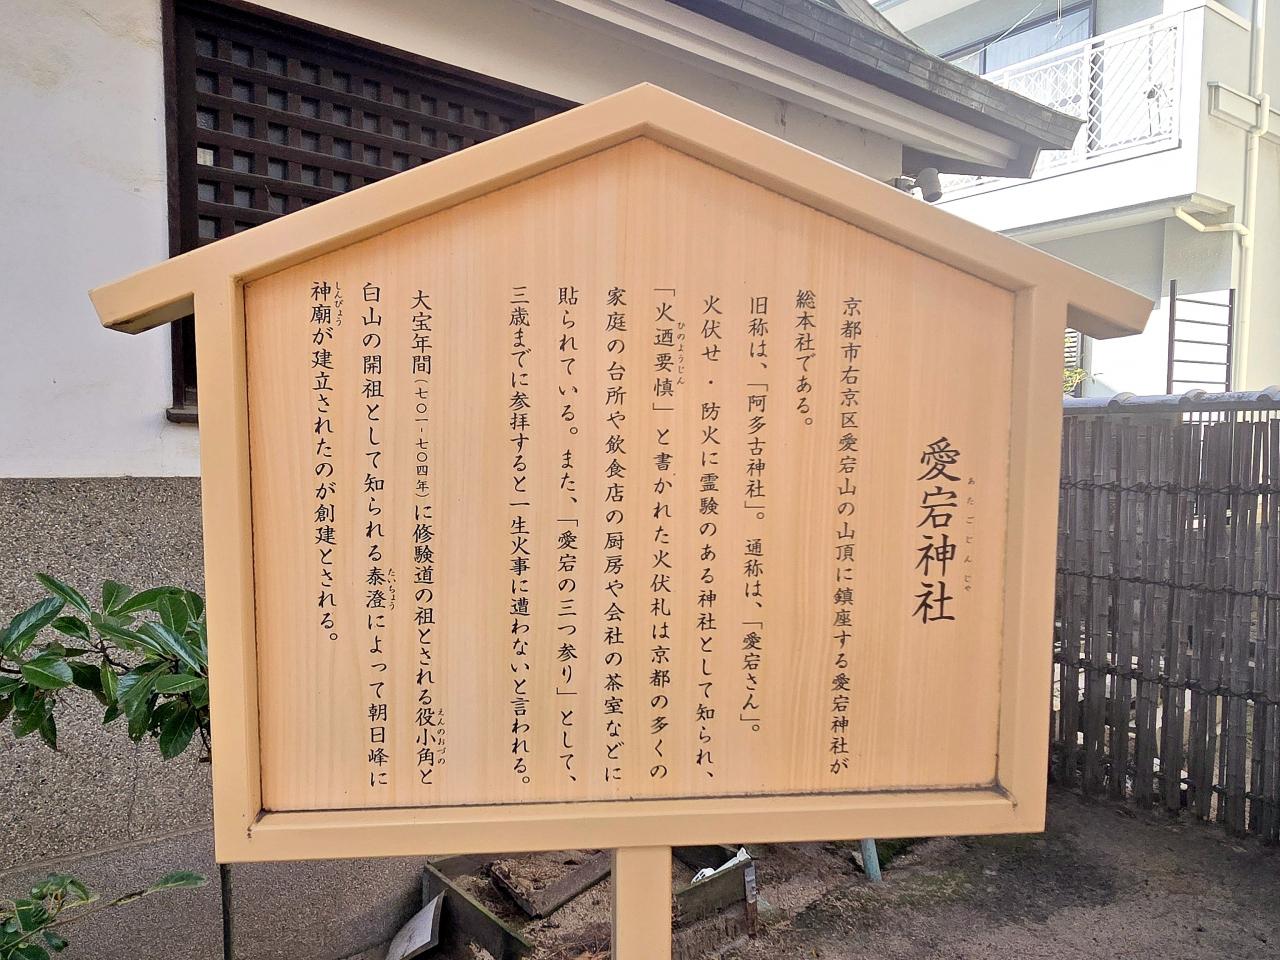 愛宕神社
あたごじんじゃ
京都市右京区愛宕山の山頂に鎮座する愛宕神社が
総本社である。
旧称は、「阿多古神社」。通称は、「愛宕さん」。
火伏せ・防火に霊験のある神社として知られ、
「火迺要慎」と書かれた火伏札は京都の多くの
ひのようじん
家庭の台所や飲食店の厨房や会社の茶室などに
貼られている。また、「愛宕の三つ参り」として、
三歳までに参拝すると一生火事に遭わないと言われる。
大宝年間(七〇一-七〇四年)に修験道の祖とされる役小角と
えんのおづの
白山の開祖として知られる泰澄によって朝日峰に
たいちょう
神廟が建立されたのが創建とされる。
しんびょう